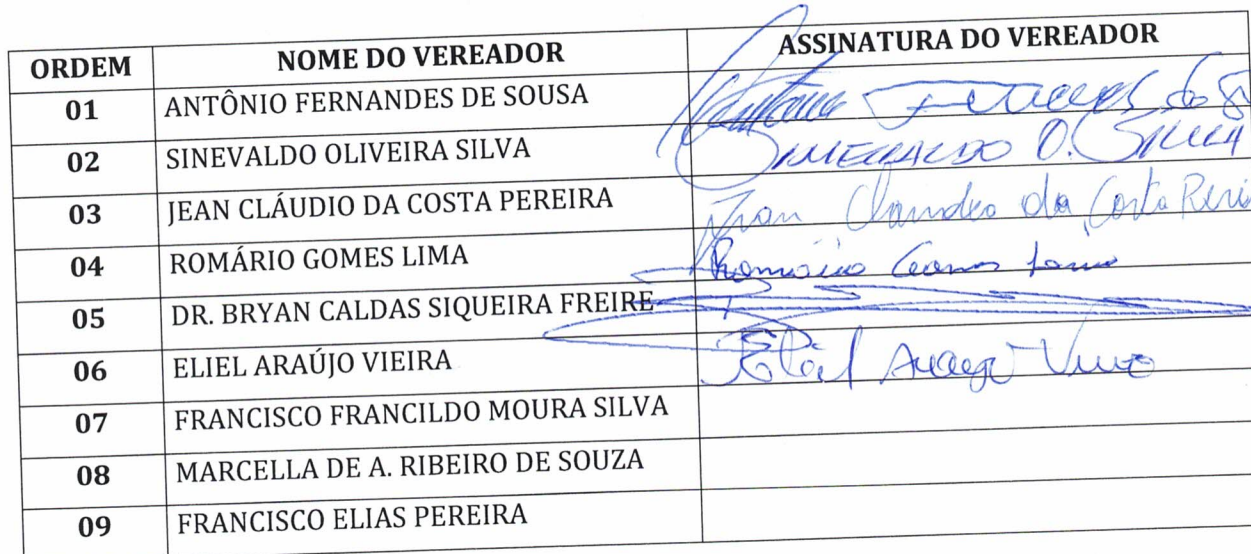 ORDEM NOME DO VEREADOR ASSINATURA DO VEREADOR
01 ANTÔNIO FERNANDES DE SOUSA
02 SINEVALDO OLIVEIRA SILVA O. SILVA
03 JEAN CLÁUDIO DA COSTA PEREIRA Jean Claudio da Costa
04 ROMÁRIO GOMES LIMA Romário Gomes Lima
05 DR. BRYAN CALDAS SIQUEIRA FREIRE
06 ELIEL ARAÚJO VIEIRA Eliel Araujo
07 FRANCISCO FRANCILDO MOURA SILVA
08 MARCELLA DE A. RIBEIRO DE SOUZA
09 FRANCISCO ELIAS PEREIRA